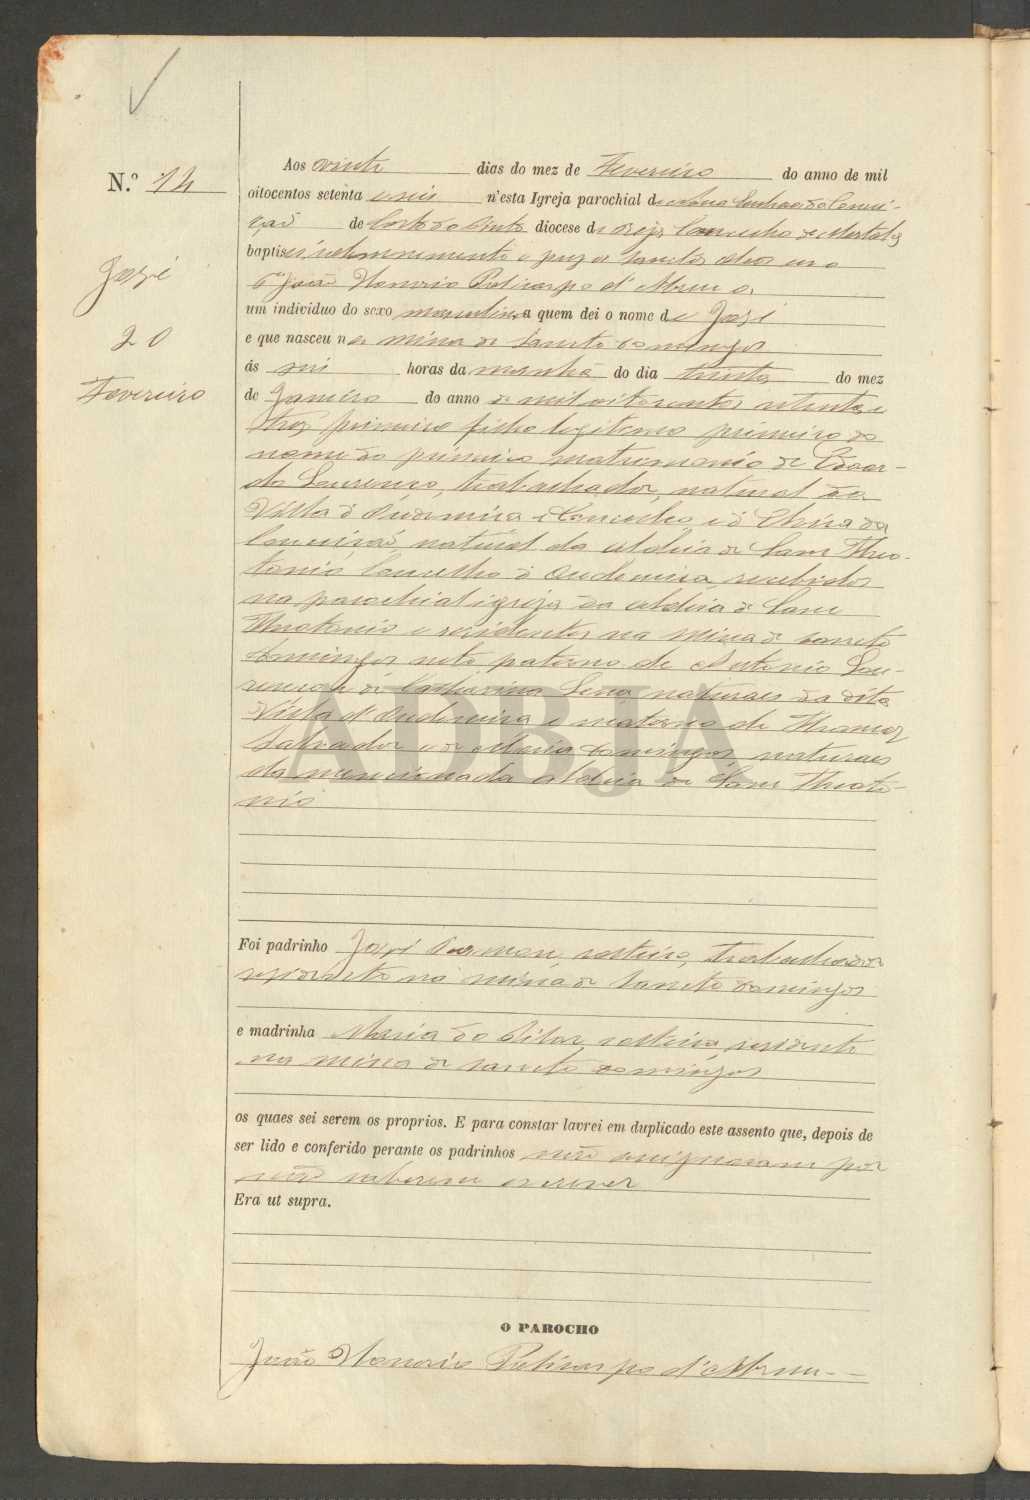 N.º 14
José
20
Fevereiro
Aos vinte dias do mez de Fevereiro do anno de mil
oitocentos setenta e seis n'esta Igreja parochial de Nossa Senhora da Concei-
ção de Corte do Pinto diocese de Beja Concelho de Mertola
baptisei solemnemente e puz os Sanctos oleos eu o
P.e João Honorio Policarpo d'Abreu a
um individuo do sexo masculino a quem dei o nome de José
e que nasceu na mina de Sancto Domingos
ás seis horas da manhã do dia trinta do mez
de Janeiro do anno de mil oitocentos setenta e
tres primeiro filho legitimo primeiro do
nome do primeiro matrimonio de Eduar-
do Lourenço, trabalhador, natural da
Villa d'Oudemira e Concelho e de
Conceição natural da aldeia de Sam Theo-
tonio Concelho d'Oudemira, recebidos
na parochial igreja da aldeia de Sam
Theotonio e residentes na Mina de Sancto
Domingos neto paterno de Antonio Lou-
renço e de Catharina naturaes da dita
Villa d'Oudemira e materno de
Salvador e de Maria Domingos naturaes
da mencionada aldeia de Sam Theoto-
nio
ADBJA
Foi padrinho José solteiro, trabalhador
residente na mina de Sancto Domingos
e madrinha Maria do Pilar, solteira, residente
na mina de Sancto Domingos
os quaes sei serem os proprios. E para constar lavrei em duplicado este assento que, depois de
ser lido e conferido perante os padrinhos não assignaram por
não saberem escrever
Era ut supra.
O PAROCHO
João Honorio Policarpo d'Abreu